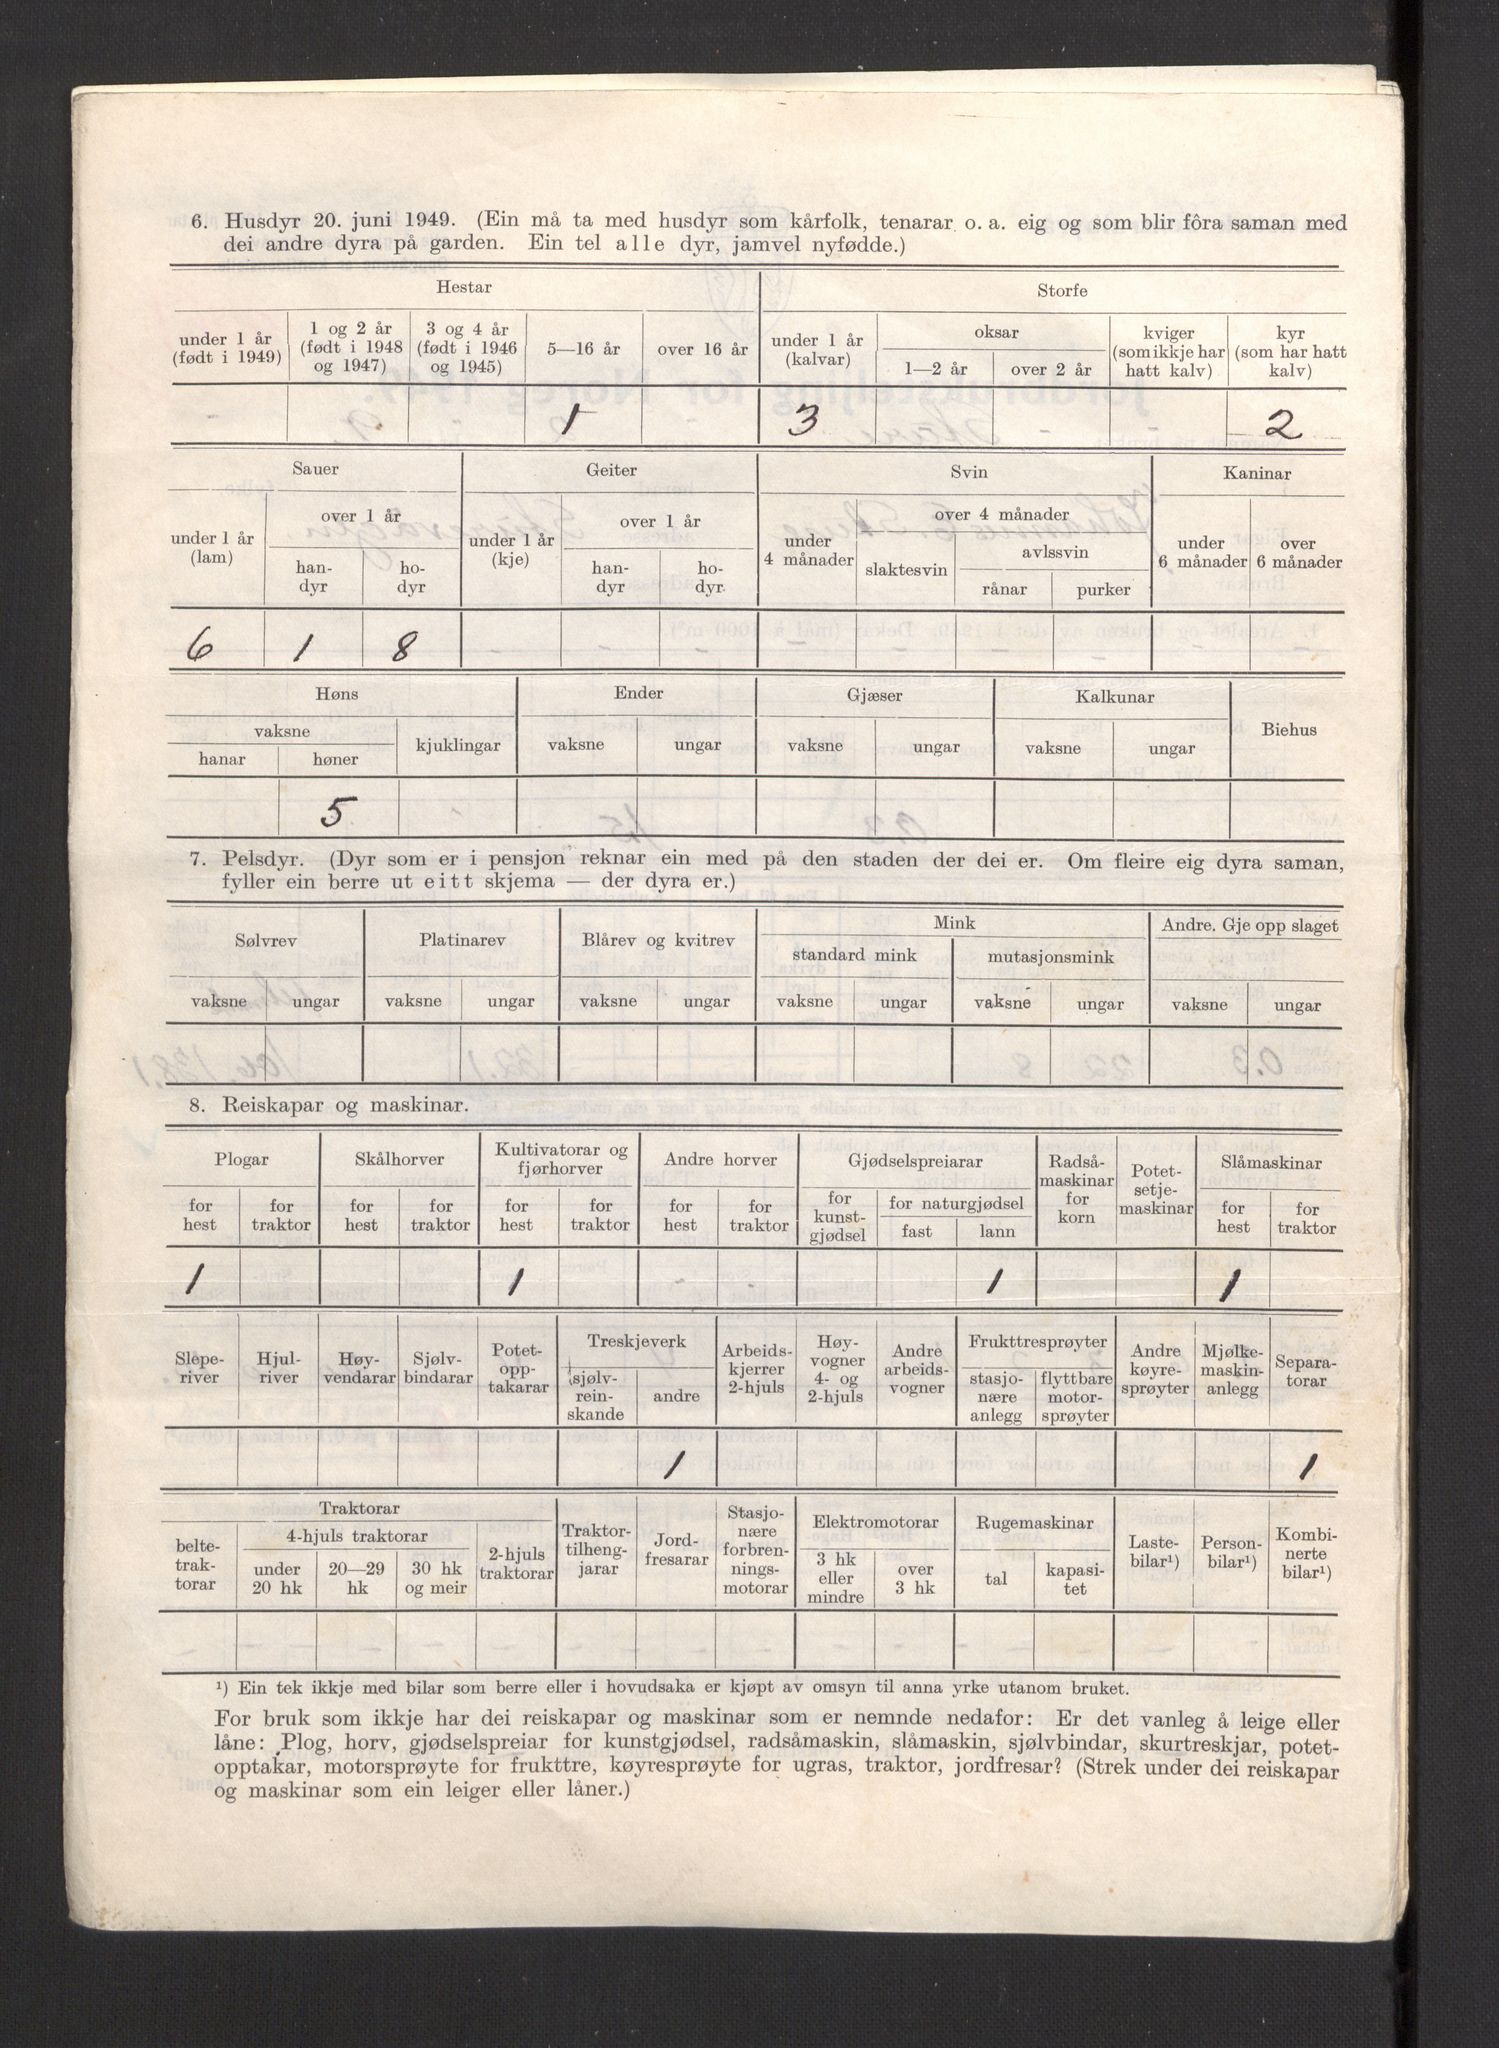 6. Husdyr 20. juni 1949. (Ein må ta med husdyr som kårfolk, tenarar o. a. eig og som blir fôra saman med
dei andre dyra på garden. Ein tel alle dyr, jamvel nyfødde.)
Hestar Storfe
under 1 år (født i 1949) 1 og 2 år (født i 1948 og 1947) 3 og 4 år (født i 1946 og 1945) 5—16 år over 16 år under 1 år (kalvar) oksar 1—2 år over 2 år kviger (som ikkje har hatt kalv) kyr (som har hatt kalv)
1 3 2
Sauer Geiter Svin Kaninar
under 1 år (lam) over 1 år han-dyr ho-dyr under 1 år (kje) over 1 år han-dyr ho-dyr under 4 månader over 4 månader slaktesvin avlssvin rånar purker under 6 månader over 6 månader
6 1 8 - - - - - - - - -
Høns Ender Gjæser Kalkunar Biehus
vaksne hanar høner kjuklingar vaksne ungar vaksne ungar vaksne ungar
5
7. Pelsdyr. (Dyr som er i pensjon reknar ein med på den staden der dei er. Om fleire eig dyra saman,
fyller ein berre ut eitt skjema — der dyra er.)
Sølvrev Platinarev Blårev og kvitrev Mink Andre. Gje opp slaget
standard mink mutasjonsmink
vaksne ungar vaksne ungar vaksne ungar vaksne ungar vaksne ungar vaksne ungar
8. Reiskapar og maskinar.
Plogar Skålhorver Kultivatorar og fjørhorver Andre horver Gjødselspreiarar Radså-maskinar for korn Potet-setje-maskinar Slåmaskinar
for hest for traktor for hest for traktor for hest for traktor for hest for traktor for kunst-gjødsel for naturgjødsel fast lann for hest for traktor
1 1 - - 1 1
Slepe-river Hjul-river Høy-vendarar Sjølv-bindarar Potet-opp-takarar Treskjeverk sjølv-rein-skande andre Arbeids-kjerrer 2-hjuls Høy-vogner 4- og 2-hjuls Andre arbeids-vogner Frukttresprøyter stasjo-nære anlegg flyttbare motor-sprøyter Andre køyre-sprøyter Mjølke-maskin-anlegg Separa-torar
1 1
Traktorar
belte-trak-torar 4-hjuls traktorar under 20 hk 20—29 hk 30 hk og meir 2-hjuls traktorar Traktor-tilheng-jarar Jord-fresarar Stasjo-nære forbren-nings-motorar Elektromotorar 3 hk eller mindre over 3 hk Rugemaskinar tal kapasi-tet Laste-bilar¹) Person-bilar¹) Kombi-nerte bilar¹)
¹) Ein tek ikkje med bilar som berre eller i hovudsaka er kjøpt av omsyn til anna yrke utanom bruket.
For bruk som ikkje har dei reiskapar og maskinar som er nemnde nedafor: Er det vanleg å leige eller
låne: Plog, horv, gjødselspreiar for kunstgjødsel, radsåmaskin, slåmaskin, sjølvbindar, skurtreskjar, potet-
opptakar, motorsprøyte for frukttre, køyresprøyte for ugras, traktor, jordfresar? (Strek under dei reiskapar
og maskinar som ein leiger eller låner.)